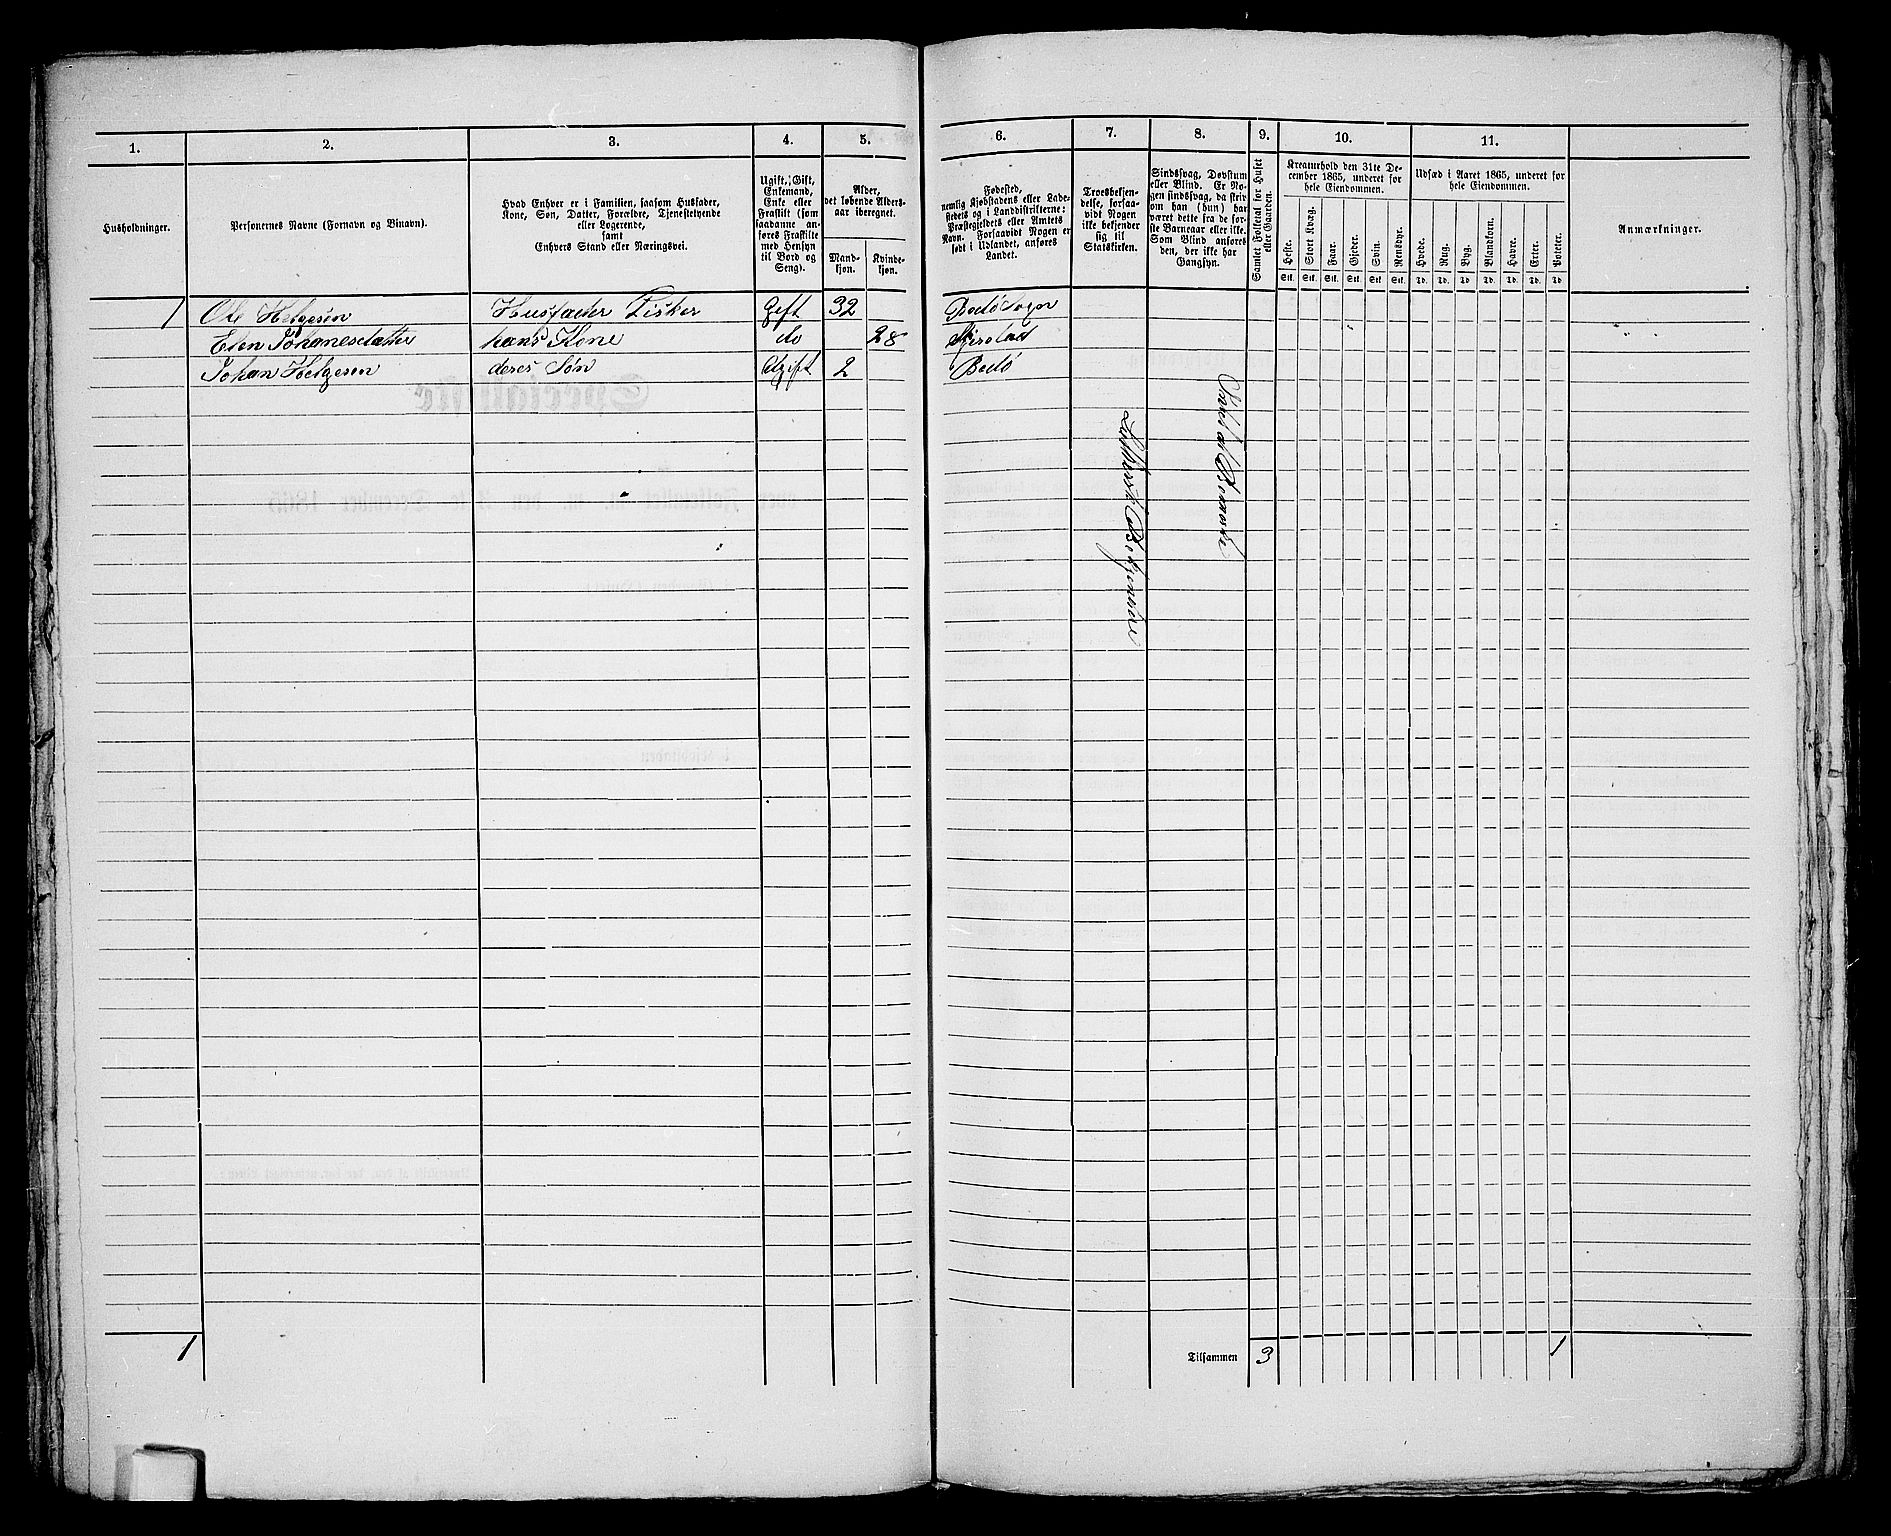 1. 2. 3. 4. 5. 6. 7. 8. 9. 10. 11.
Husholdninger.
Personernes Navne (Fornavn og Binavn).
Hvad Enhver er i Familien, saasom Husfader,
Kone, Søn, Datter, Forældre, Tjenestetyende
eller Logerende,
samt
Enhvers Stand eller Næringsvei.
Ugift, Gift,
Enkemand,
Enke eller
Fraskilt (som
saadanne an-
føres Fraskilte
med Hensyn
til Bord og
Seng).
Alder,
det løbende Alders-
aar iberegnet.
Mand-
kjøn.
Kvinde-
kjøn.
Fødested,
nemlig Kjøbstadens eller Lade-
stedets og i Landdistrikterne:
Præstegjeldets eller Amtets
Navn. Forsaavidt Nogen er
født i Udlandet, anføres
Landet.
Troesbekjen-
delse, forsaa-
vidt Nogen
ikke bekjender
sig til
Statskirken.
Sindssvag, Døvstum
eller Blind. Er No-
gen sindssvag, da skriv
om han (hun) har
været dette fra de før-
ste Barneaar eller ikke.
Som Blind anføres
den, der ikke har
Gangsyn.
Samlet Folketal for Huset
eller Gaarden.
Kreaturhold den 31te De-
cember 1865, underet for
hele Eiendommen.
Heste. Stort Kvæg. Faar. Gjeder. Svin. Rensdyr.
Stk. Stk. Stk. Stk. Stk. Stk.
Udsæd i Aaret 1865, underet for
hele Eiendommen.
Hvede. Rug. Byg. Blandkorn. Havre. Erter. Poteter.
Td. Td. Td. Td. Td. Td. Td.
Anmærkninger.
1 Ole Helgesen Husfader Fisker Gift 32 Bodø Sogn
Elen Johanesdatter hans Kone do 28
Johan Helgesen deres Søn Ugift 2 Bodø
1
Tilsammen 3 1